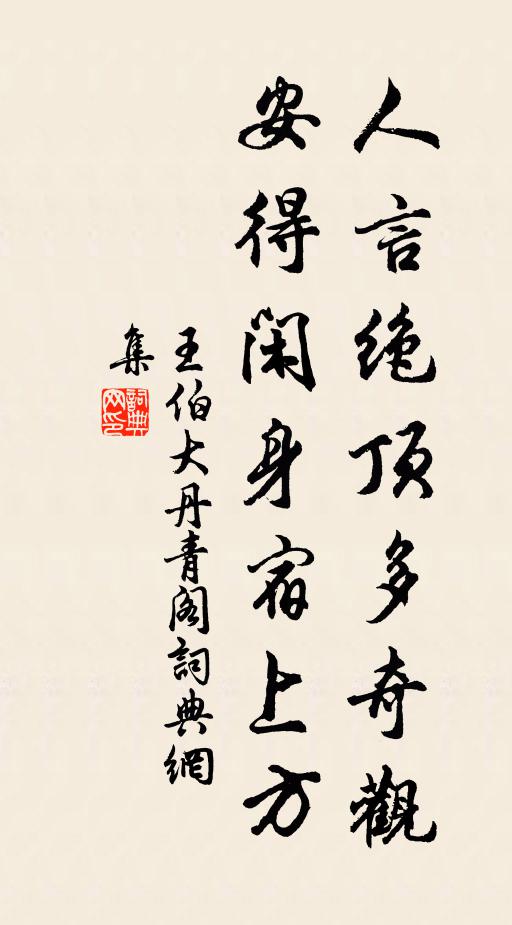 人言绝顶多奇觀
安得闲身宿上方
王伯大丹青阁詞典網
集
詞典
网印